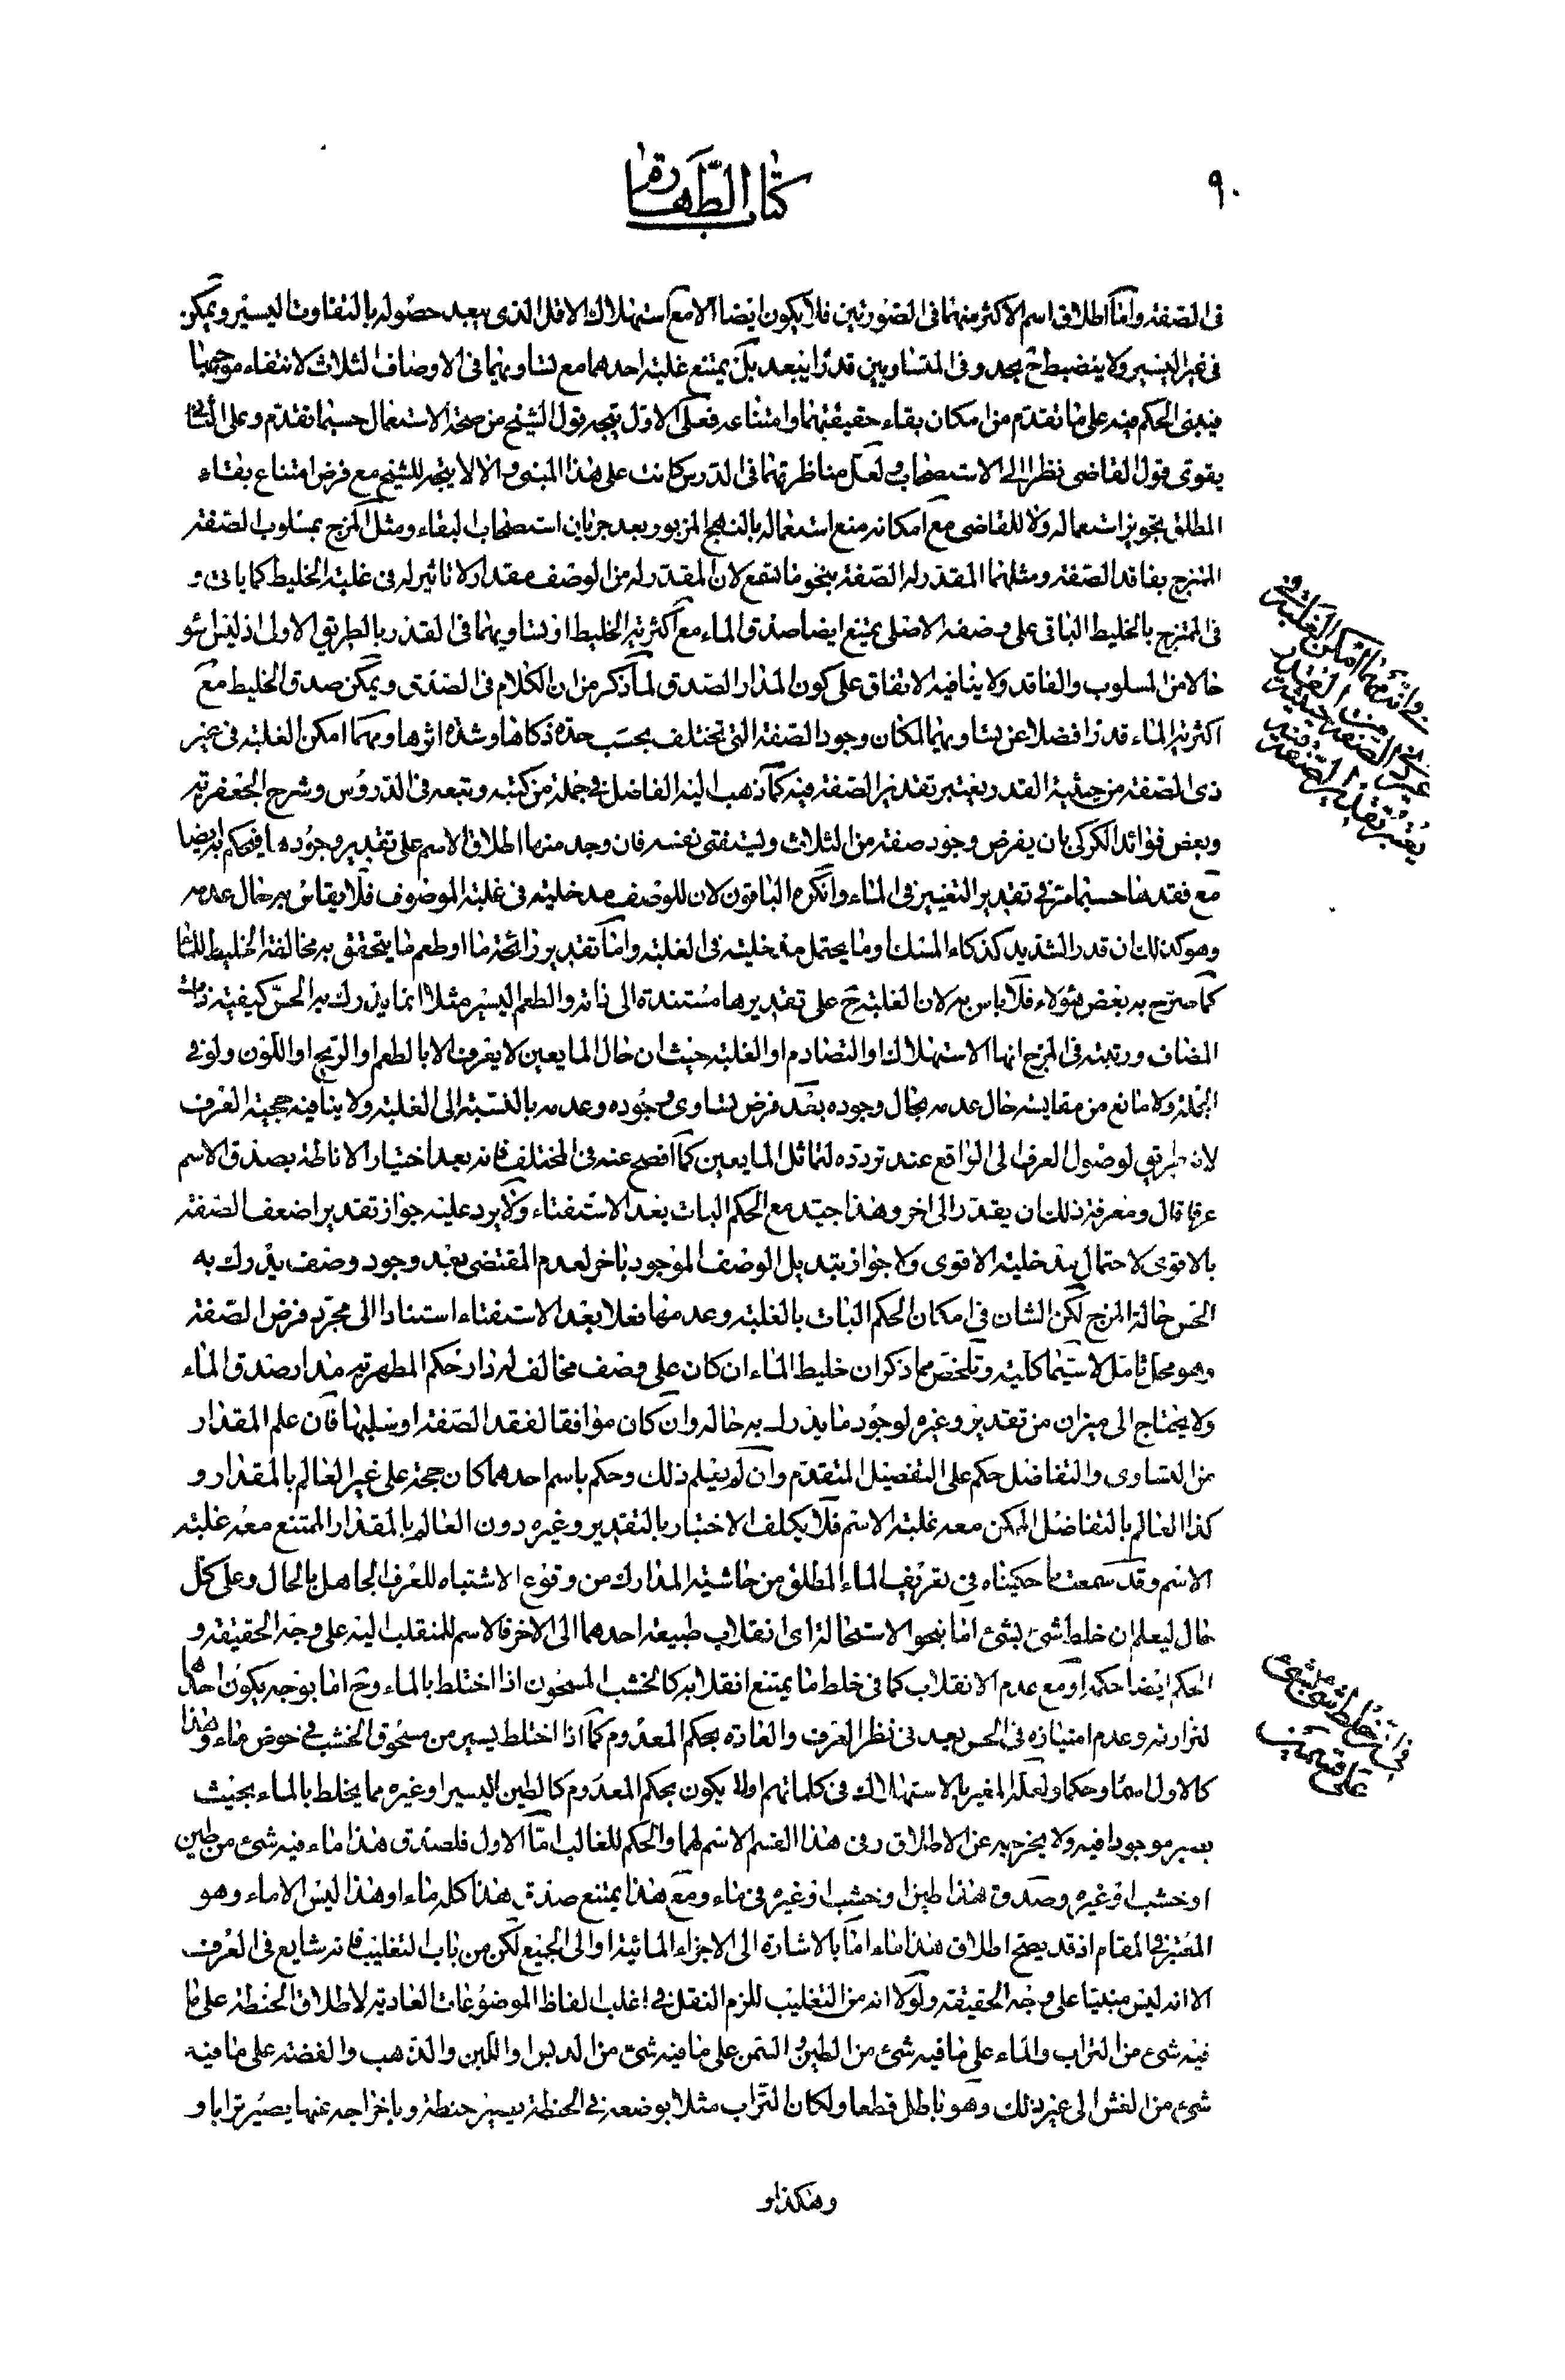 ٩٠
كتاب الطّهارة
فى الصّفة وامّا اطلاق اسم الاكثر منهما فى الصّورتين فلا يكون ايضا الا مع استهلاك الاقل الذى يبعد حصوله بالتفاوت اليسير ويمكن
فى غير اليسير ولا ينضبط ح بحد وفى المتساويين قدرا يبعد بل يمتنع غلبة احدهما مع تساويهما فى الاوصاف الثلاث لانتفاء موجبها
فيبنى الحكم فيه على ما تقدّم من امكان بقاء حقيقتهما وامتناعه فعلى الاوّل يتجه قول الشيخ من صحة الاستعمال حسبما تقدّم وعلى الثانى
يقوى قول القاضى نظرا الى الاستصحاب ولعل مناظرتهما فى الدرس كانت على هذا المبنى والا لا يتجه للشيخ مع فرض امتناع بقاء
المطلق تجويز استعماله ولا للقاضى مع امكانه منع استعماله بالنهج المزبور بعد جريان استصحاب البقاء ومثل المزج بمسلوب الصّفة
الممتزج بفاقد الصّفة ومثلهما المقدر له الصّفة بنحو ما تقع لان المقدر له من الوصف مقدار لا تاثير له فى غلبة الخليط كما ياتى و
فى الممتزج بالخليط الباقى على وصفه الاصلى يمتنع ايضا صدق الماء مع اكثرية الخليط او تساويهما فى القدر بالطريق الاولى اذ ليس اسوء
حالا من المسلوب والفاقد ولا ينافيه الاتفاق على كون المدار الصّدق لما ذكر من ان الكلام فى الصّدق ويمكن صدق الخليط مع
اكثرية الماء قدرا فضلا عن تساويهما لمكان وجود الصّفة التى تختلف بحسب حدة ذكاها وشدة اثرها ومهما امكن الغلبة فى غير
ذى الصّفة من حيثية القدر ويعتبر تقدير الصّفة فيه كما ذهب اليه الفاضل فى جملة من كتبه وتبعه فى الدروس وشرح الجعفرية
وبعض فوائد الكركى بان يفرض وجود صفة من الثلاث وليستفتى نفسه فان وجد منها اطلاق الاسم على تقدير وجودها فيحكم به ايضا
مع فقدها حسبما مرّ فى تقدير التغيير فى الماء وانكره الباقون لان للوصف مدخلية فى غلبة الموصوف فلا يقاس به حال عدمه
وهو كذلك ان قدر الشديد كذكاء المسك وما يحتمل مدخليته فى الغلبة وامّا تقدير رائحة ما او طعم ما يتحقق به مخالفة الخليط للماء
كما صرّح به بعض هؤلاء فلا باس به لان الغلبة ح على تقديرها مستندة الى ذاته والطعم اليسير مثلا انما يدرك به الحسّ كيفية ذات
المضاف ورتبته فى المزج انها الاستهلاك او التصادم او الغلبة حيث ان حال المايعين لا يعرف الا بالطعم او الريح او اللّون ولو فى
الجملة ولا مانع من مقايسة حال عدمه بحال وجوده بعد فرض تساوى وجوده وعدمه بالنسبة الى الغلبة ولا ينافيه حجية العرف
لانه طريق لوصول العرف الى الواقع عند تردده لتماثل المايعين كما افصح عنه فى المختلف فانه بعد اختيار الاناطة بصدق الاسم
عرفا قال ومعرفة ذلك ان يقدر الى اخره وهذا جيّد مع الحكم البات بعد الاستفتاء ولا يرد عليه جواز تقدير اضعف الصّفة
بالاقوى لاحتمال مدخلية الاقوى ولا جواز تبديل الوصف الموجود باخر لعدم المقتضى بعد وجود وصف يدرك به
الحس حالة المزج لكن الشان فى امكان الحكم البات بالغلبة وعدمها فعلا بعد الاستفتاء استنادا الى مجرّد فرض الصّفة
وهو محل تامّل لا سيّما كليّة وتلخّص مما ذكر ان خليط الماء ان كان على وصف مخالف له دار حكم المطهرية مدار صدق الماء
ولا يحتاج الى ميزان من تقدير وغيره لوجود ما يدرك به حاله وان كان موافقا لفقد الصّفة او سلبها فان علم المقدار
من التساوى والتفاضل حكم على التفصيل المتقدّم وان لم يعلم ذلك وحكم باسم احدهما كان حجة على غير العالم بالمقدار و
كذا العالم بالتفاضل الممكن معه غلبة الاسم فلا يكلف الاختبار بالتقدير وغيره دون العالم بالمقدار الممتنع معه غلبة
الاسم وقد سمعت ما حكيناه فى تعريف الماء المطلق من حاشية المدارك من وقوع الاشتباه للعرف الجاهل بالحال وعلى كل
حال ليعلم ان خلط شئ بشئ امّا بنحو الاستحالة اى انقلاب طبيعة احدهما الى الاخر فالاسم للمنقلب اليه على وجه الحقيقة و
الحكم ايضا حكمه او مع عدم الانقلاب كما فى خلط ما يمتنع انقلابه كالخشب المسحون اذا اختلط بالماء وح اما بوجه يكون احدهما
لنزارته وعدم امتيازه فى الحس يعد فى نظر العرف والعادة بحكم المعدوم كما اذا اختلط يسير من مسحوق الخشب فى حوض ماء وهذا
كالاول اسمًا وحكما ولعله المعبر بالاستهلاك فى كلماتهم او لا يكون بحكم المعدوم كالطين اليسير او غيره مما يخلط بالماء بحيث
يعتبر موجودا فيه ولا يخرج به عن الاطلاق وفى هذا القسم الاسم لهما والحكم للغالب امّا الاول فلصدق هذا ماء فيه شئ من طين
او خشب او غيره وصدق هذا طين او خشب او غيره فى ماء ومع هذا يمتنع صدق هذا كله ماء او هذا ليس الا ماء وهو
المعتبر فى المقام اذ قد يصح اطلاق هذا ماء امّا بالاشارة الى الاجزاء المائية او الى الجميع لكن من باب التغليب فانه شايع فى العرف
الا انه ليس مبنيا على وجه الحقيقة ولولا انه من التغليب للزم النقل فى اغلب الفاظ الموضوعات العادية لاطلاق الحنطة على ما
فيه شئ من التراب والماء على ما فيه شئ من الطين والسّمن على ما فيه شئ من الدبس واللبن والذهب والفضة على ما فيه
شئ من الغش الى غير ذلك وهو باطل قطعا ولكان التّراب مثلا بوضعه فى الحنطة يصير حنطة وباخراجه عنها يصير ترابا و
وهكذا و
فى انه مهما امكن الغلبة فى
غير ذى الصّفة من حيثية القدر
يعتبر تقدير الصّفة فيه
فى ان خلط شئ بشئ
على قسمين